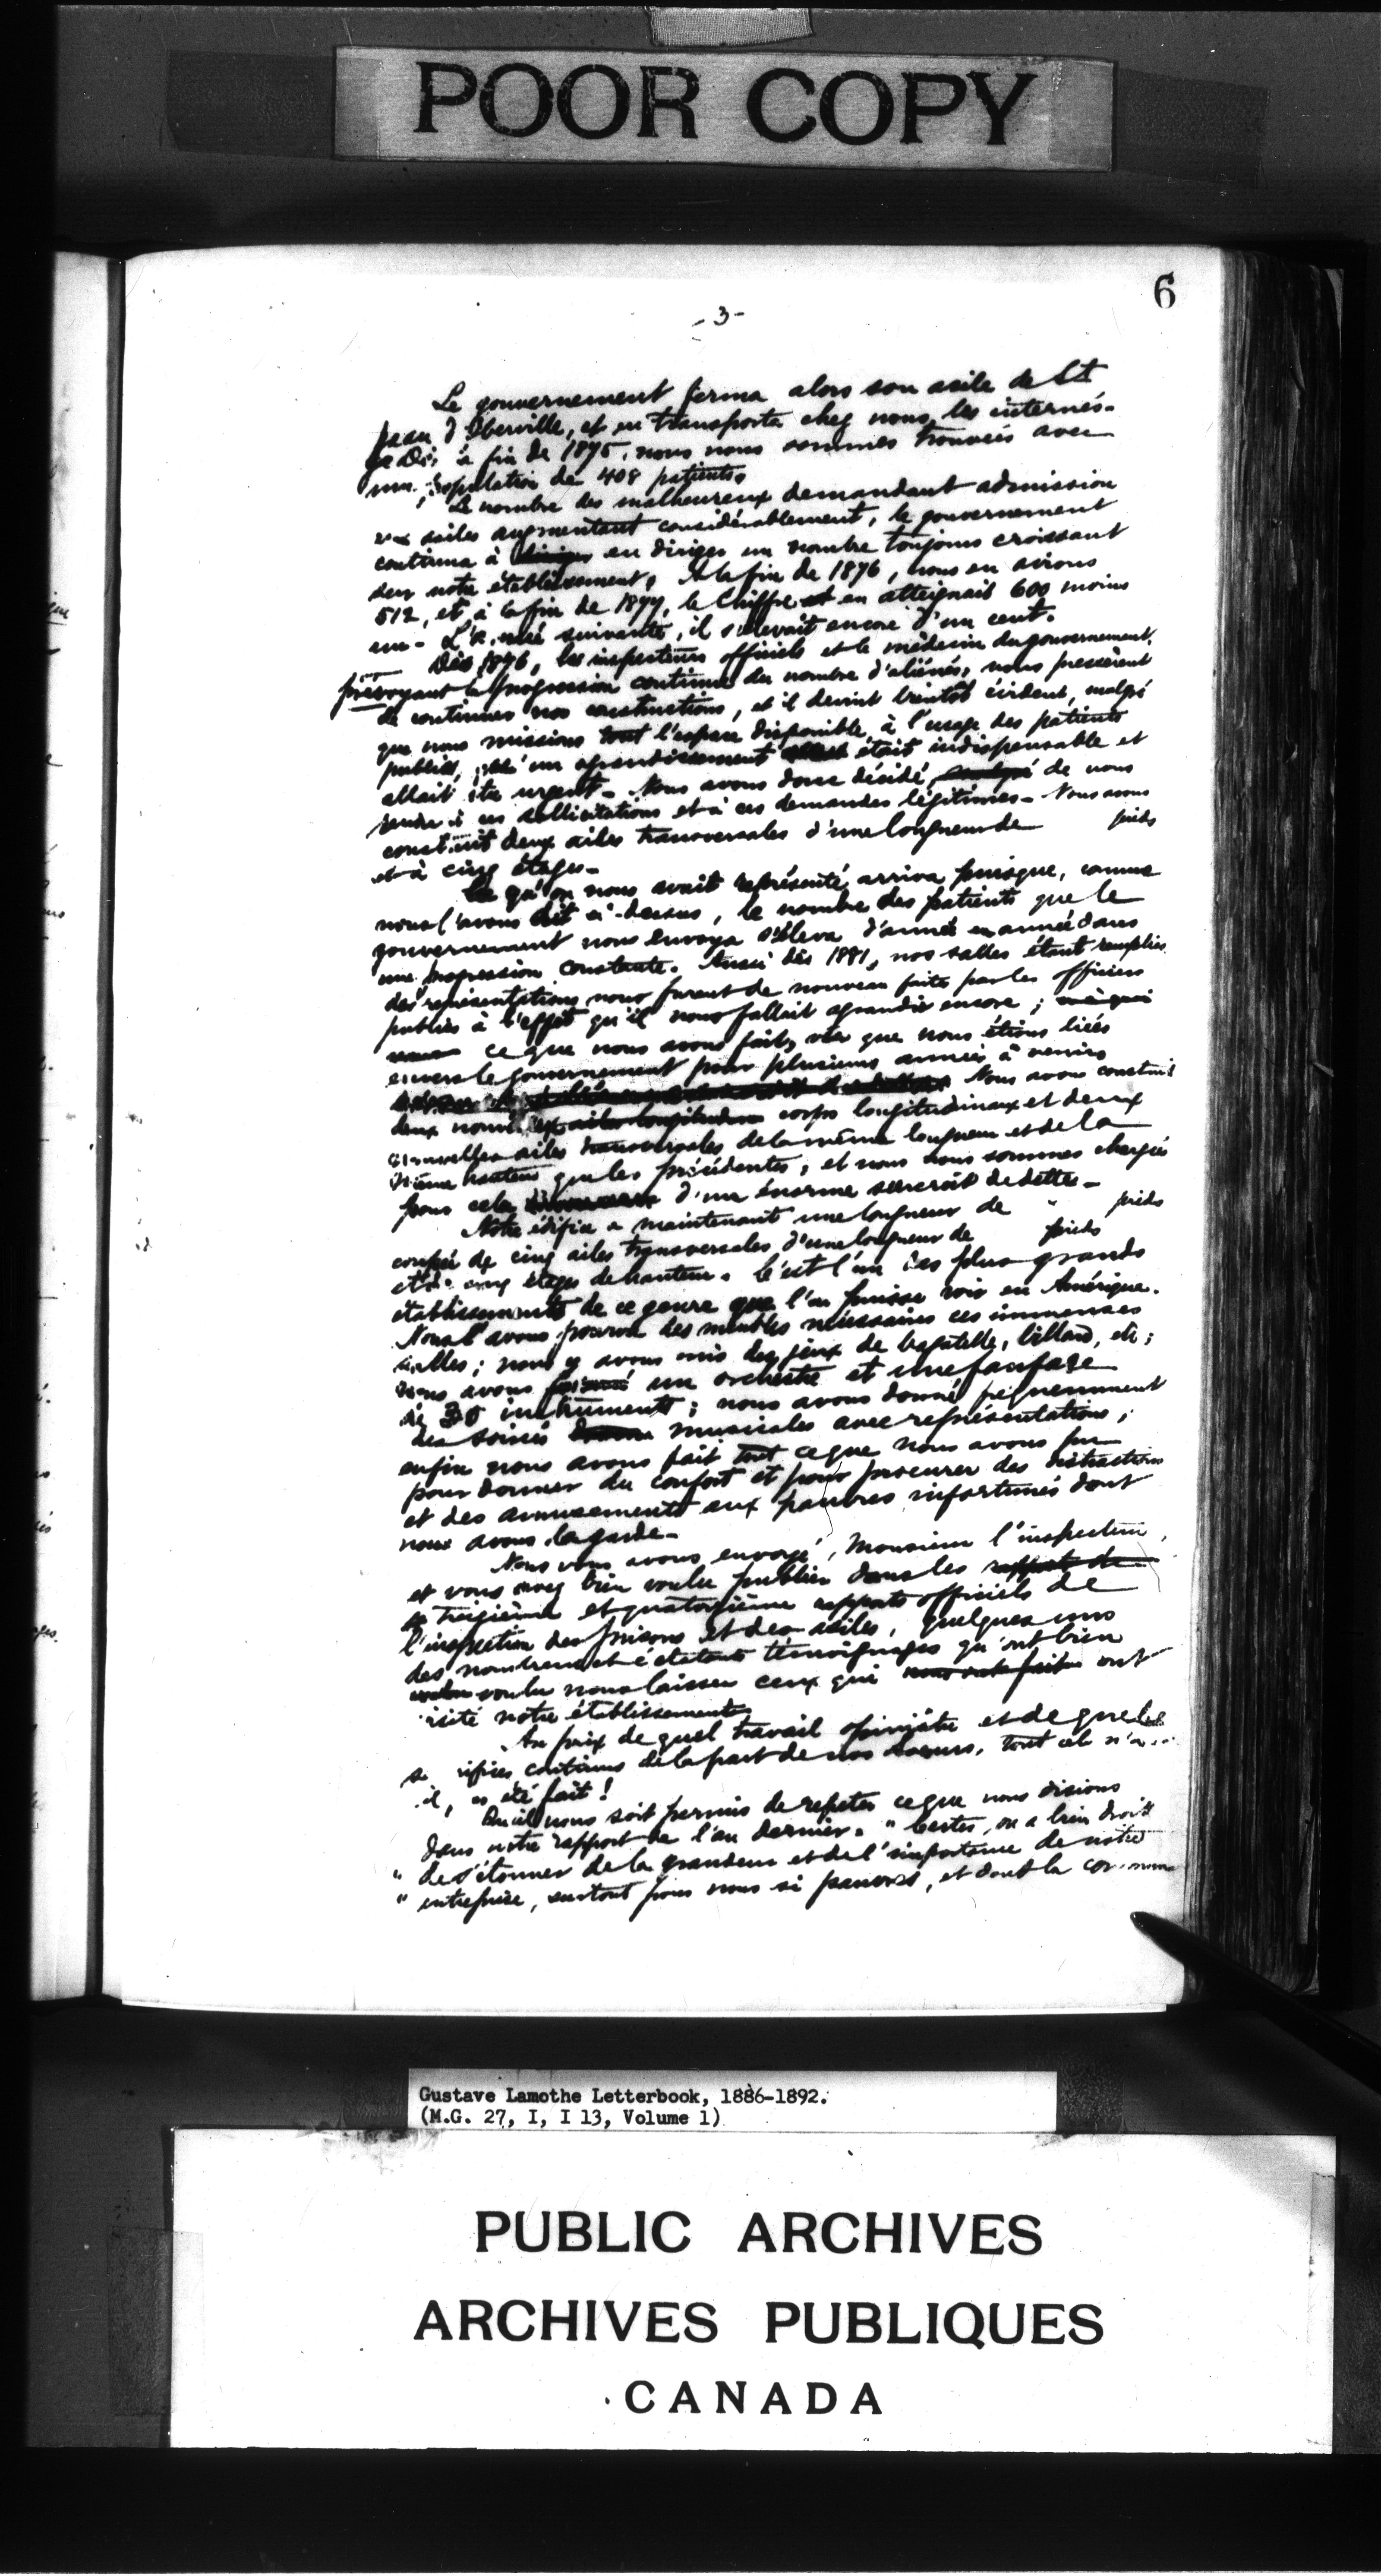 POOR COPY
6
- 3 -
Le gouvernement ferma alors son asile de St
Jean d'Iberville, et en transporta chez nous, les internés.
à fin de 1875, nous nous sommes trouvées avec
une population de 408 patients.
Le nombre des malheureux demandant admission
aux asiles augmentant considérablement, le gouvernement
continua à en diriger un nombre toujours croissant
dans notre établissement. A la fin de 1876, nous en avions
512, et à la fin de 1877, le chiffre en atteignait 600 moins
un - L'année suivante, il s'élevait encore d'un cent.
Dès 1876, les inspecteurs officiels et le médecin du gouvernement,
prévoyant la progression continue du nombre d'aliénés, nous pressèrent
de continuer nos constructions, et il devint bientôt évident, malgré
que nous missions tout l'espace disponible à l'usage des patients
publics, qu'un agrandissement était indispensable et
allait être urgent - Nous avons donc décidé de nous
rendre à ces sollicitations et à ces demandes légitimes - Nous avons
construit deux ailes transversales d'une longueur de pieds
et à cinq étages -
Ce qu'on nous avait représenté arriva puisque, comme
nous l'avons dit ci-dessus, le nombre des patients que le
gouvernement nous envoya s'éleva d'année en année dans
une progression constante. Aussi dès 1881, nos salles étant remplies
des représentations nous furent de nouveau faites par les officiers
publics à l'effet qu'il nous fallait agrandir encore ;
ce que nous avons fait, vu que nous étions liées
envers le gouvernement pour plusieurs années à venir.
Nous avons construit
deux nouveaux corps longitudinaux et deux
nouvelles ailes transversales de la même longueur et de la
même hauteur que les précédentes, et nous nous sommes chargées
pour cela d'un énorme surcroît de dettes -
Notre édifice a maintenant une longueur de pieds
coupée de cinq ailes transversales d'une longueur de pieds
et à cinq étages de hauteur. C'est l'un des plus grands
établissements de ce genre que l'on puisse voir en Amérique.
Nous avons pourvu des meubles nécessaires ces immenses
salles ; nous y avons mis des jeux de bagatelle, billard, etc ;
nous avons formé un orchestre et une fanfare
de 30 instruments ; nous avons donné fréquemment
des soirées musicales avec représentations ;
enfin nous avons fait tout ce que nous avons pu
pour donner du confort et pour procurer des distractions
et des amusements aux pauvres infortunés dont
nous avons la garde -
Nous vous avons envoyé, Monsieur l'inspecteur,
et vous avez bien voulu publier dans les rapport de
treizième et quatorzième rapports officiels de
l'inspection des prisons et des asiles, quelques uns
des nombreux et éclatants témoignages qu'ont bien
voulu nous laisser ceux qui nous ont fait ont
visité notre établissement.
Au prix de quel travail opiniâtre et de quels
sacrifices continus de la part de nos soeurs, tout cela n'a
il, as été fait !
Qu'il nous soit permis de répéter ce que nous disions
dans notre rapport de l'an dernier. " Certes, on a bien droit
" de s'étonner de la grandeur et de l'importance de notre
" entreprise, surtout pour nous si pauvres, et dont la
Gustave Lamothe Letterbook, 1886-1892.
(M.G. 27, I, I 13, Volume 1)
PUBLIC ARCHIVES
ARCHIVES PUBLIQUES
CANADA